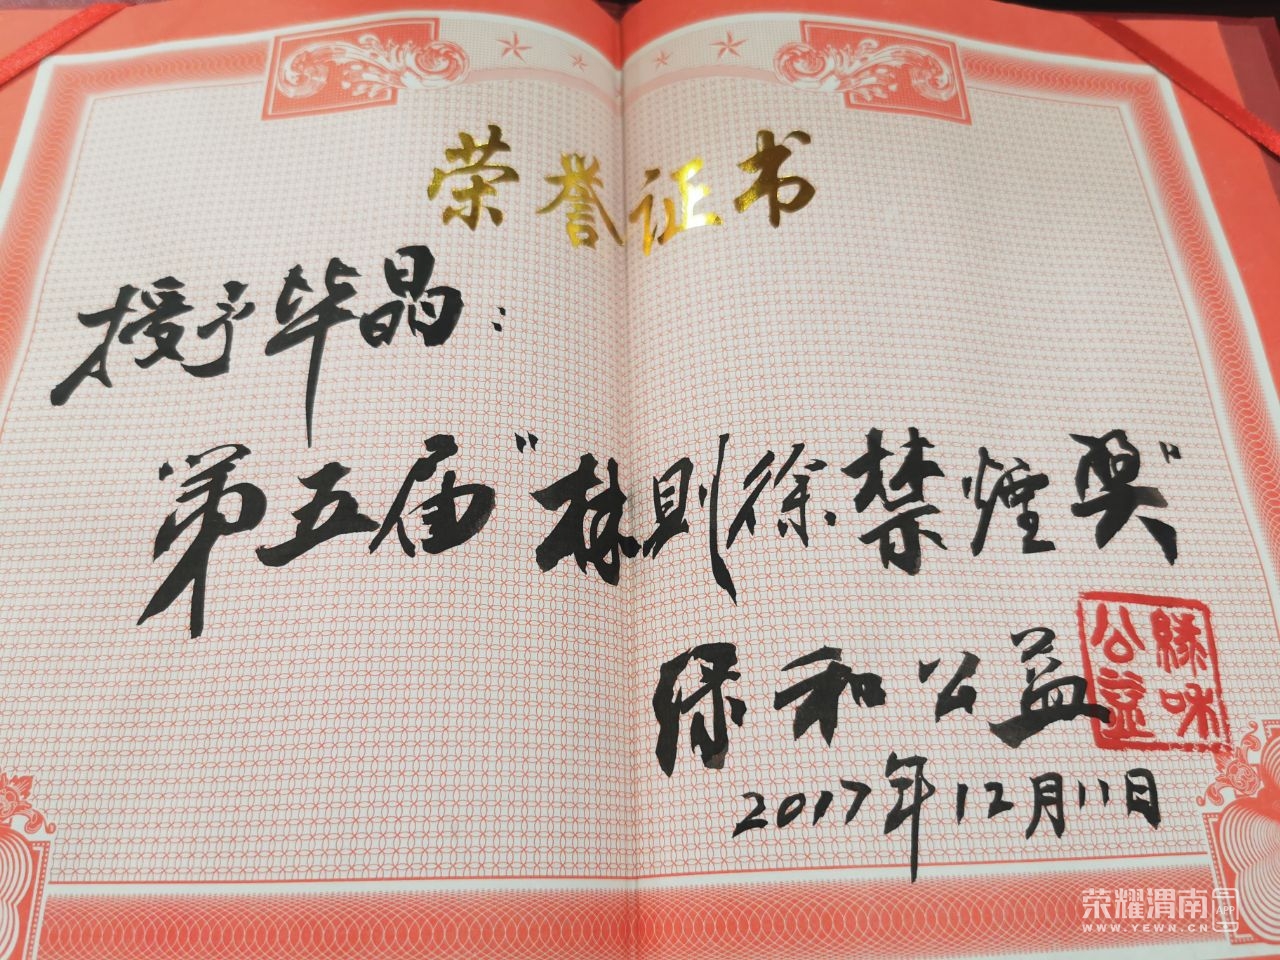 荣誉证书
授予毕晶：
第五届“林则徐禁煙奖”
绿和公益
緑和
公益
2017年12月11日
荣耀渭南 APP
WWW.YEWN.CN